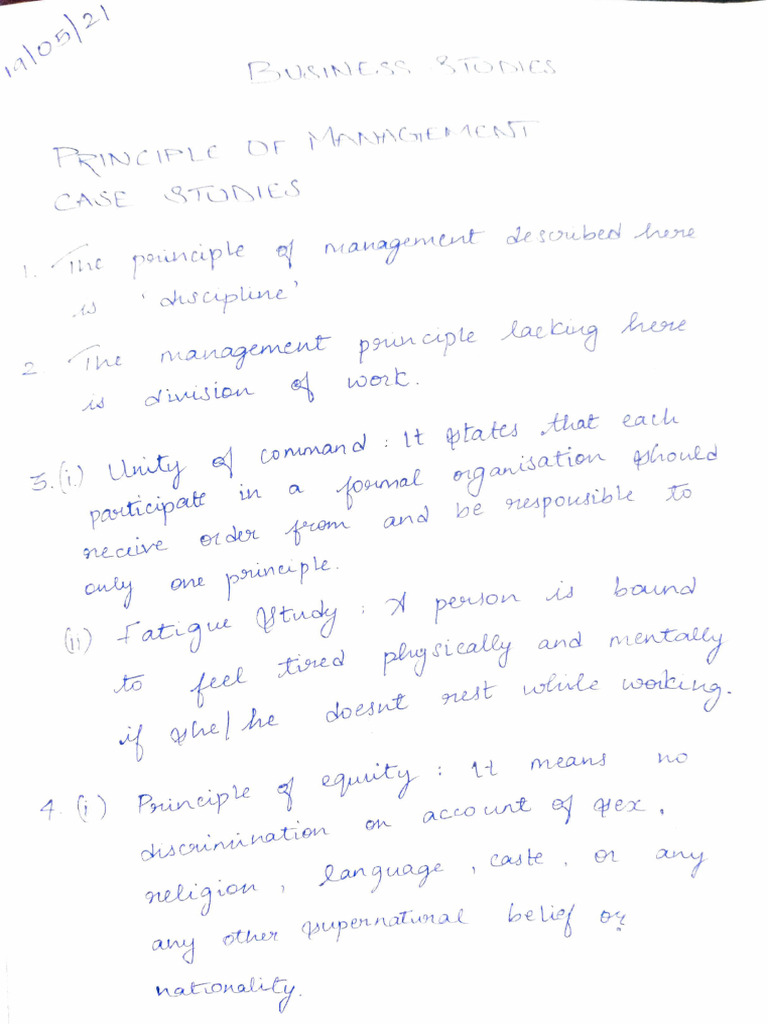 19/05/21
BUSINESS STUDIES
PRINCIPLE OF MANAGEMENT
CASE STUDIES
1. The principle of management described here
is 'discipline'
2. The management principle lacking here
is division of work.
3.(i.) Unity of command : It states that each
participate in a formal organisation should
receive order from and be responsible to
only one principle.
(ii) Fatigue Study : A person is bound
to feel tired physically and mentally
if she/he doesnt rest while working.
4.(i) Principle of equity : It means no
discrimination on account of sex,
religion, language, caste, or any
any other supernatural belief or
nationality.